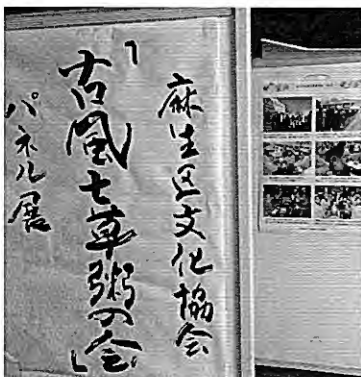 麻生区文化協会
「古風七草粥の会」
パネル展